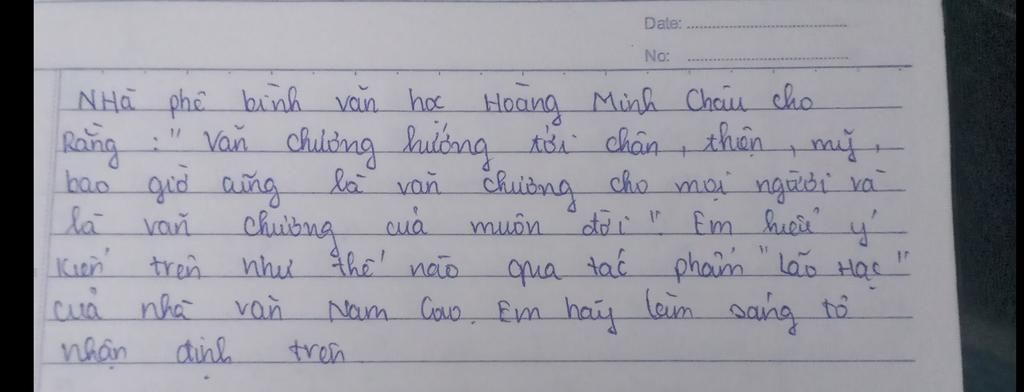 Date:
No:
NHà phê bình văn học Hoàng Minh Châu cho
Rằng : " Văn chương hướng tới chân , thiện , mỹ ,
bao giờ cũng là văn chương cho mọi người và
là văn chương của muôn đời " . Em hiểu ý
kiến trên như thế nào qua tác phẩm " Lão Hạc "
của nhà văn Nam Cao . Em hãy làm sáng tỏ
nhận định trên